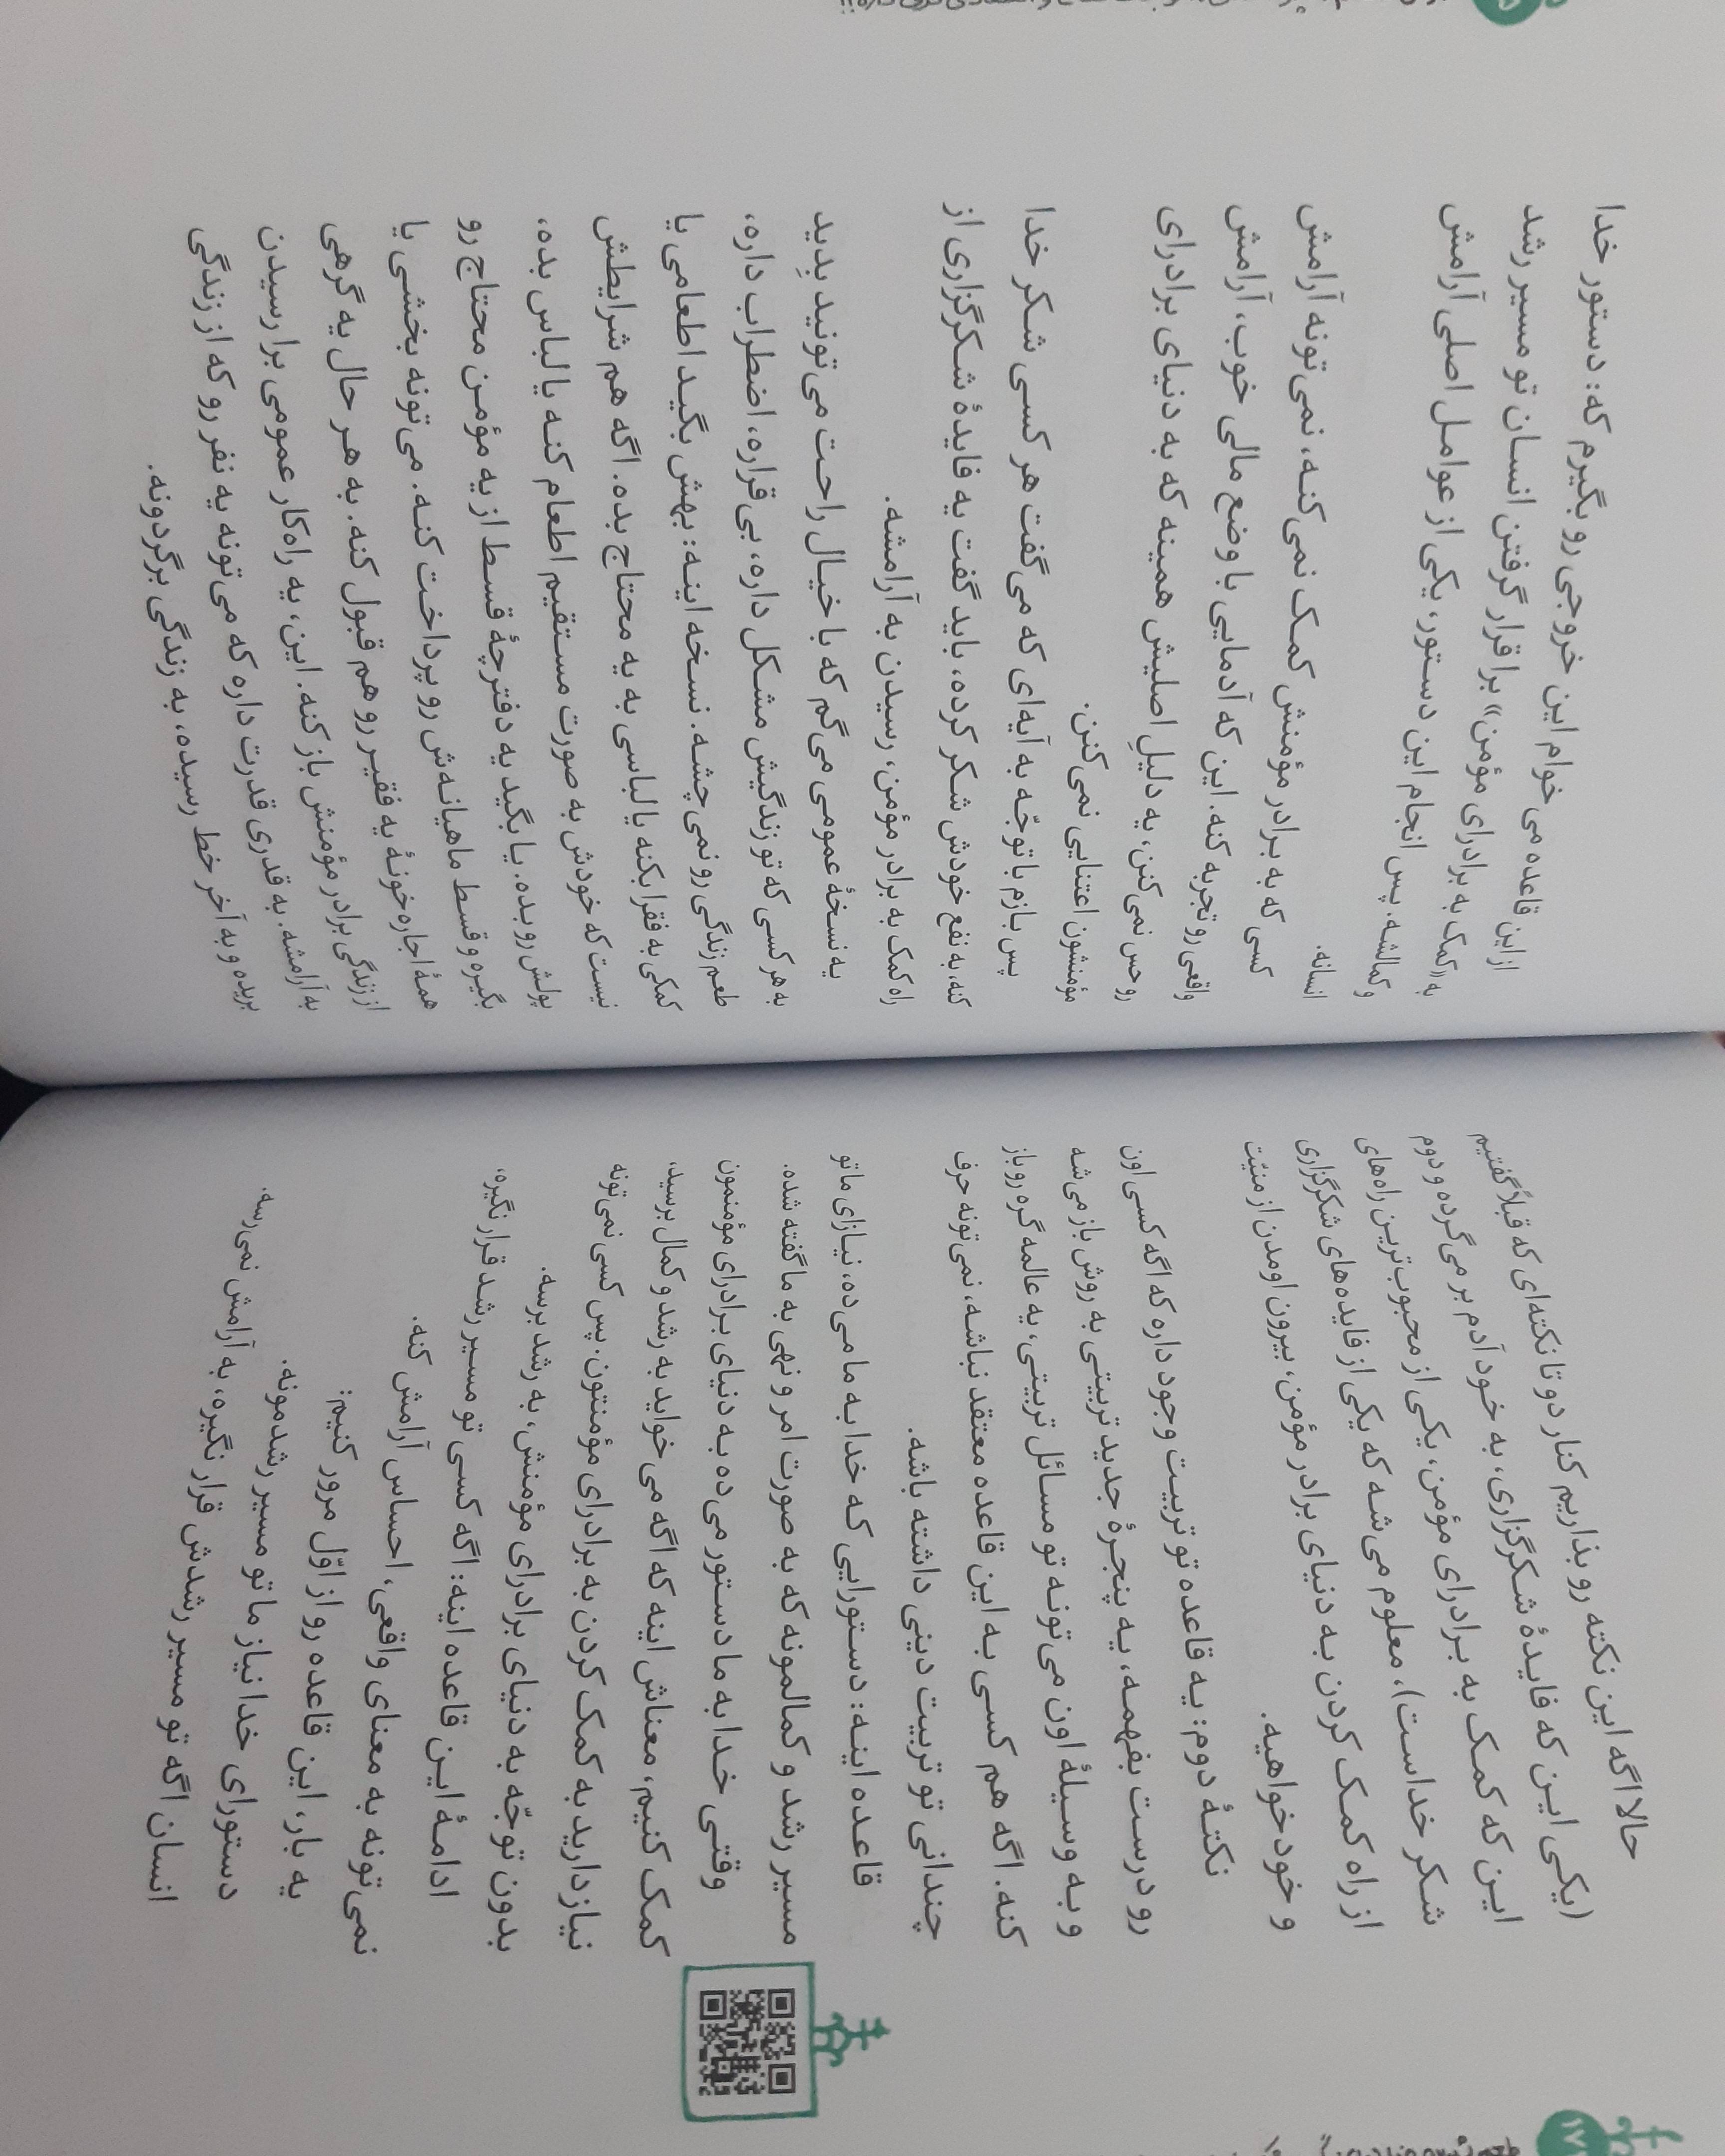 حالا اگه این نکته رو بذاریم کنار دو تا نکته‌ای که قبلاً گفتیم
(یکی این که فایدهٔ شکرگزاری، به خود آدم بر می‌گرده و دوم
این که کمک به برادرای مؤمن، یکی از محبوب‌ترین راه‌های
شکر خداست)، معلوم می‌شه که یکی از فایده‌های شکرگزاری
از راه کمک کردن به دنیای برادر مؤمن، بیرون اومدن از منیّت
و خودخواهیه.
نکتهٔ دوم: یه قاعده تو تربیت وجود داره که اگه کسی اون
رو درست بفهمه، یه پنجرهٔ جدید تربیتی به روش باز می‌شه
و به وسیلهٔ اون می‌تونه تو مسائل تربیتی، یه عالمه گره رو باز
کنه. اگه هم کسی به این قاعده معتقد نباشه، نمی‌تونه حرف
چندانی تو تربیت دینی داشته باشه.
قاعده اینه: دستورایی که خدا به ما می‌ده، نیازای ما تو
مسیر رشد و کمالمونه که به صورت امر و نهی به ما گفته شده.
وقتی خدا به ما دستور می‌ده به دنیای برادرای مؤمنمون
کمک کنیم، معناش اینه که اگه می‌خواید به رشد و کمال برسید،
نیاز دارید به کمک کردن به برادرای مؤمنتون. پس کسی نمی‌تونه
بدون توجّه به دنیای برادرای مؤمنش، به رشد برسه.
ادامهٔ این قاعده اینه: اگه کسی تو مسیر رشد قرار نگیره،
نمی‌تونه به معنای واقعی، احساس آرامش کنه.
یه بار، این قاعده رو از اوّل مرور کنیم:
دستورای خدا نیاز ما تو مسیر رشدمونه.
انسان اگه تو مسیر رشدش قرار نگیره، به آرامش نمی‌رسه.
از این قاعده می‌خوام این خروجی رو بگیرم که: دستور خدا
به «کمک به برادرای مؤمن» برا قرار گرفتن انسان تو مسیر رشد
و کمالشه. پس انجام این دستور، یکی از عوامل اصلی آرامش
انسانه.
کسی که به برادر مؤمنش کمک نمی‌کنه، نمی‌تونه آرامش
واقعی رو تجربه کنه. این که آدمایی با وضع مالی خوب، آرامش
رو حس نمی‌کنن، یه دلیلِ اصلیش همینه که به دنیای برادرای
مؤمنشون اعتنایی نمی‌کنن.
پس بازم با توجّه به آیه‌ای که می‌گفت هر کسی شکر خدا
کنه، به نفع خودش شکر کرده، باید گفت یه فایدهٔ شکرگزاری از
راه کمک به برادر مؤمن، رسیدن به آرامشه.
یه نسخهٔ عمومی می‌گم که با خیال راحت می‌تونید بِدید
به هر کسی که تو زندگیش مشکل داره، بی‌قراره، اضطراب داره،
طعم زندگی رو نمی‌چشه. نسخه اینه: بهش بگید اطعامی یا
کمکی به فقرا بکنه یا لباسی به یه محتاج بده. اگه هم شرایطش
نیست که خودش به صورت مستقیم اطعام کنه یا لباس بده،
پولش رو بده. یا بگید یه دفترچهٔ قسط از یه مؤمن محتاج رو
بگیره و قسط ماهیانه‌ش رو پرداخت کنه. می‌تونه بخشی یا
همهٔ اجاره خونهٔ یه فقیر رو هم قبول کنه. به هر حال یه گرهی
از زندگی برادر مؤمنش باز کنه. این، یه راه‌کار عمومی برا رسیدن
به آرامشه. به قدری قدرت داره که می‌تونه یه نفر رو که از زندگی
بریده و به آخر خط رسیده، به زندگی برگردونه.